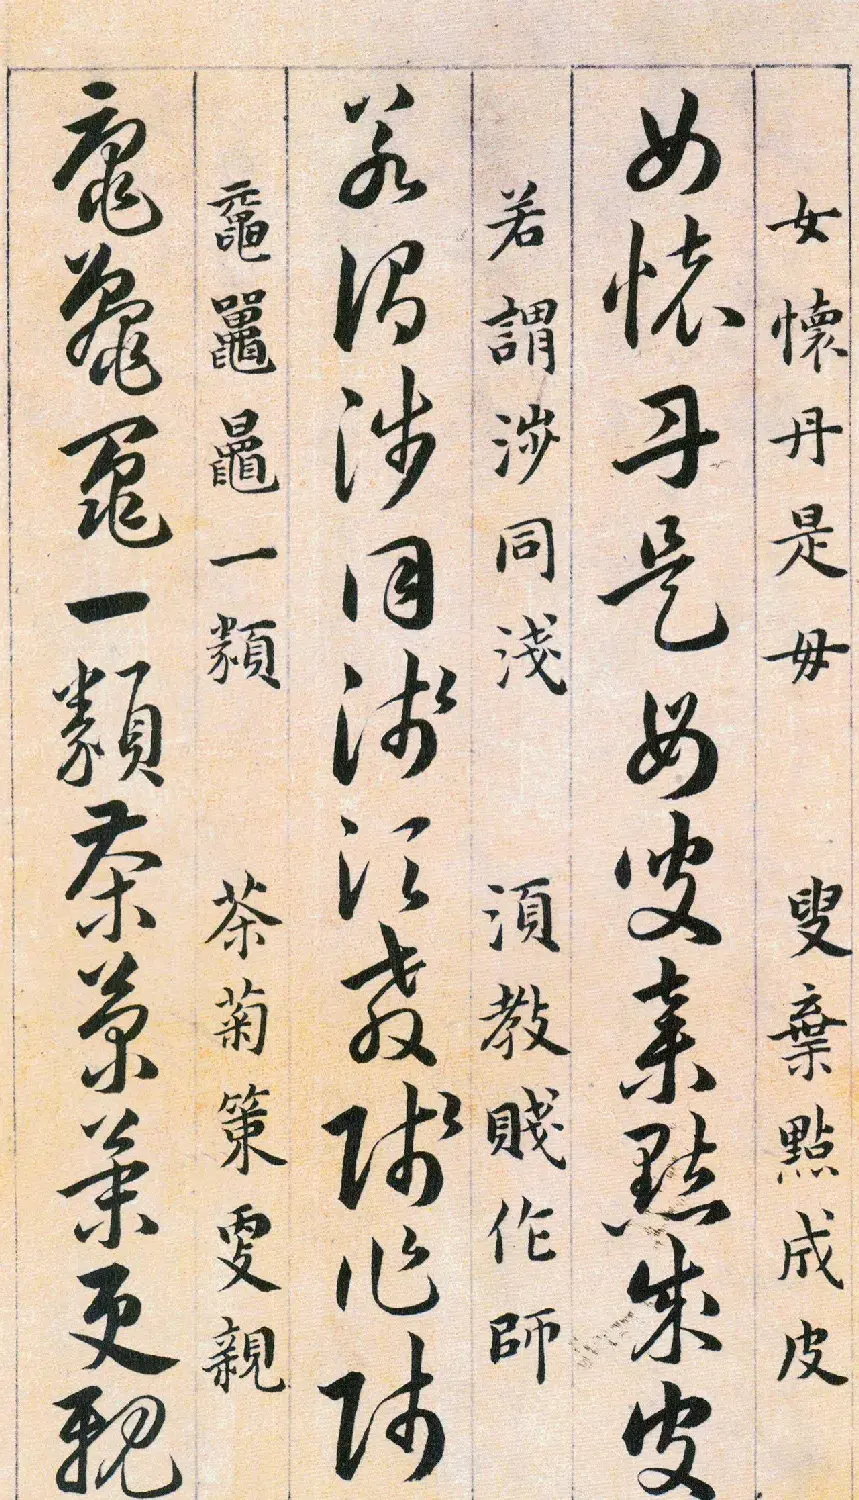 女懷丹是毋　叟棄點成皮
女懷丹是毋叟棄點成皮
若謂涉同淺　湏教賤作師
若謂涉同淺湏教賤作師
黿鼉鼂一類　茶菊策更親
黿鼉鼂一類茶菊策更親